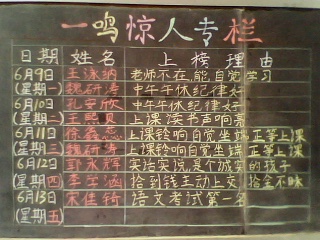 一鸣惊人专栏
日期 姓名 上榜理由
6月9日 王泳纳 老师不在,能自觉学习
(星期一) 魏研涛 中午午休纪律好
6月10日 孔安欣 中午午休纪律好
(星期二) 王熙贝 上课读书声响亮
6月11日 徐鑫忍 上课铃响自觉坐端正等上课
(星期三) 魏研涛 上课铃响自觉坐端正等上课
6月12日 郭永辉 实话实说,是个诚实的孩子
(星期四) 李学涵 拾到钱主动上交 拾金不昧
6月13日 宋佳锜 语文考试第一名
(星期五)